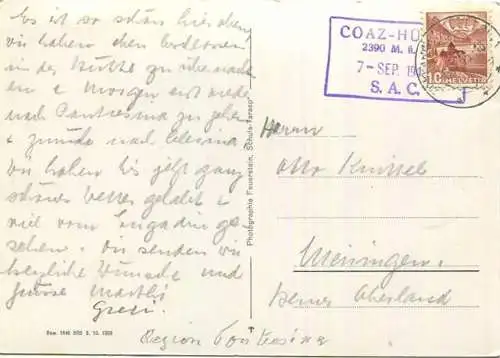 Es ist so schön hier oben
wir haben eben beschlossen
in der Hütte zu übernach-
ten & morgen erst wieder
nach Pontresina zu gehen
& zurück nach Celerina
wir haben bis jetzt ganz
schönes Wetter gehabt &
viel vom Engadin ge-
sehen. Wir senden
herzliche Wünsche und
Grüsse Marthi
Greti
Bew. 1646 BRB 3. 10. 1939
Region Pontresina
Photographie Feuerstein, Schuls-Tarasp
COAZ-HÜ
2390 M. ü.
7-SEP. 194
S. A. C.
10 HELVETIA
Herrn
Otto Knüssel
Meiringen.
Berner Oberland